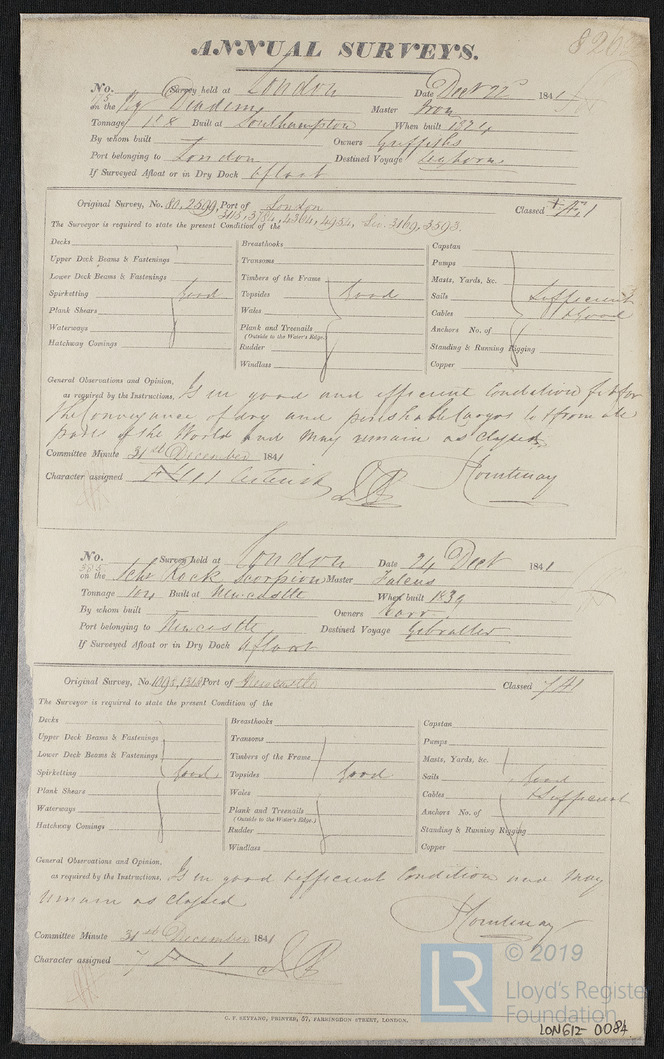 ANNUAL SURVEYS.
No. Survey held at London Date Decr 22d 1841
on the Diadem Master Iron
Tonnage 158 Built at Southampton When built 1824
By whom built Owners Griffiths
Port belonging to London Destined Voyage Leghorn
If Surveyed Afloat or in Dry Dock Afloat
Original Survey, No. 80, 2599, Port of London Classed A 1
The Surveyor is required to state the present Condition of the
Decks Breasthooks Capstan
Upper Deck Beams & Fastenings Transoms Pumps
Lower Deck Beams & Fastenings Timbers of the Frame Masts, Yards, &c.
Spirketting Good Topsides Good Sails Sufficient
Plank Shears Wales Cables & Good
Waterways Plank and Treenails Anchors No. of
(Outside to the Water's Edge.)
Hatchway Comings Rudder Standing & Running Rigging
Windlass Copper
General Observations and Opinion,
as required by the Instructions. Is in good and efficient Condition fit for
the Conveyance of dry and perishable Cargos to & from all
parts of the World and may remain as classed
Committee Minute 31st December 1841
Character assigned A 1 Asterisk
Courtenay
No. 385 Survey held at London Date 24 Decr 1841
on the Schr Rock Scorpion Master
Tonnage 104 Built at Newcastle When built 1839
By whom built Owners Carr
Port belonging to Newcastle Destined Voyage Gibralter
If Surveyed Afloat or in Dry Dock Afloat
Original Survey, No. Port of Newcastle Classed 7 A1
The Surveyor is required to state the present Condition of the
Decks Breasthooks Capstan
Upper Deck Beams & Fastenings Transoms Pumps
Lower Deck Beams & Fastenings Timbers of the Frame Masts, Yards, &c.
Spirketting Good Topsides Good Sails Good
Plank Shears Wales Cables & Sufficient
Waterways Plank and Treenails Anchors No. of
(Outside to the Water's Edge.)
Hatchway Comings Rudder Standing & Running Rigging
Windlass Copper
General Observations and Opinion,
as required by the Instructions. Is in good & efficient Condition and May
remain as classed
Courtenay
Committee Minute 31st December 1841
Character assigned 7 A 1
C. F. SEYFANG, PRINTER, 57, FARRINGDON STREET, LONDON.
LR
© 2019
Lloyd's Register
Foundation
LON612-0084